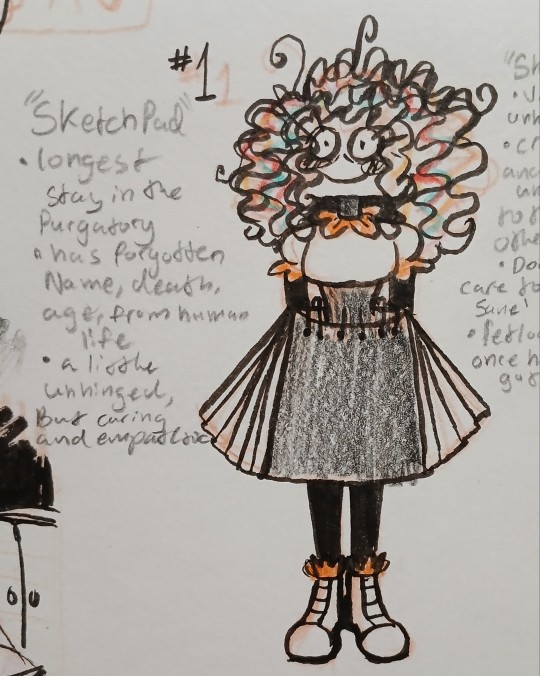 #1
"SketchPad"
• longest
stay in the
Purgatory
• has forgotten
Name, death,
age, from human
life
• a little
unhinged,
But caring
and empathic
"Sk
• U
unh
• cr
and
un
to t
othe
• Do
care to
sane'
once h
got